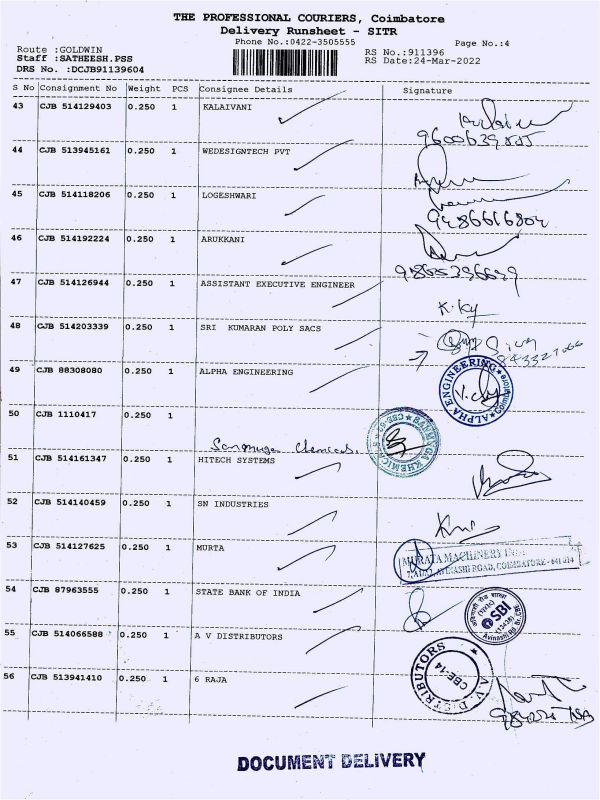 THE PROFESSIONAL COURIERS, Coimbatore
Delivery Runsheet - SITR
Phone No.:0422-3505555
Page No.:4
Route :GOLDWIN
RS No.:911396
Staff :SATHEESH.PSS
RS Date:24-Mar-2022
DRS No. :DCJB91139604
S No Consignment No Weight PCS Consignee Details Signature
43 CJB 514129403 0.250 1 KALAIVANI
44 CJB 513945161 0.250 1 WEDESIGNTECH PVT
45 CJB 514118206 0.250 1 LOGESHWARI
9486616804
46 CJB 514192224 0.250 1 ARUKKANI
47 CJB 514126944 0.250 1 ASSISTANT EXECUTIVE ENGINEER
K.Ky
48 CJB 514203339 0.250 1 SRI KUMARAN POLY SACS
49 CJB 88308080 0.250 1 ALPHA ENGINEERING
ALPHA ENGINEERING Coimbatore
50 CJB 1110417 0.250 1
Sanmuga Chemicals.
SANMUGA KHEMICALS
51 CJB 514161347 0.250 1 HITECH SYSTEMS
52 CJB 514140459 0.250 1 SN INDUSTRIES
53 CJB 514127625 0.250 1 MURTA
MURATA MACHINERY
AVINASHI ROAD, COIMBATORE - 641 014
54 CJB 87963555 0.250 1 STATE BANK OF INDIA
SBI
Avinashi Rd
55 CJB 514066588 0.250 1 A V DISTRIBUTORS
A.V. DISTRIBUTORS
CBE-14
56 CJB 513941410 0.250 1 6 RAJA
DOCUMENT DELIVERY